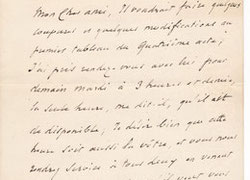 Mon cher ami, Il voudrait faire quelques
coupures et quelques modifications au
premier tableau du Quatrième acte;
J'ai pris rendez-vous avec lui pour
demain mardi à 3 heures et demie,
la seule heure, me dit-il, qu'il ait
de disponible; Je désire bien que cette
heure soit aussi la vôtre, et vous nous
rendrez service à tous deux en venant
vous